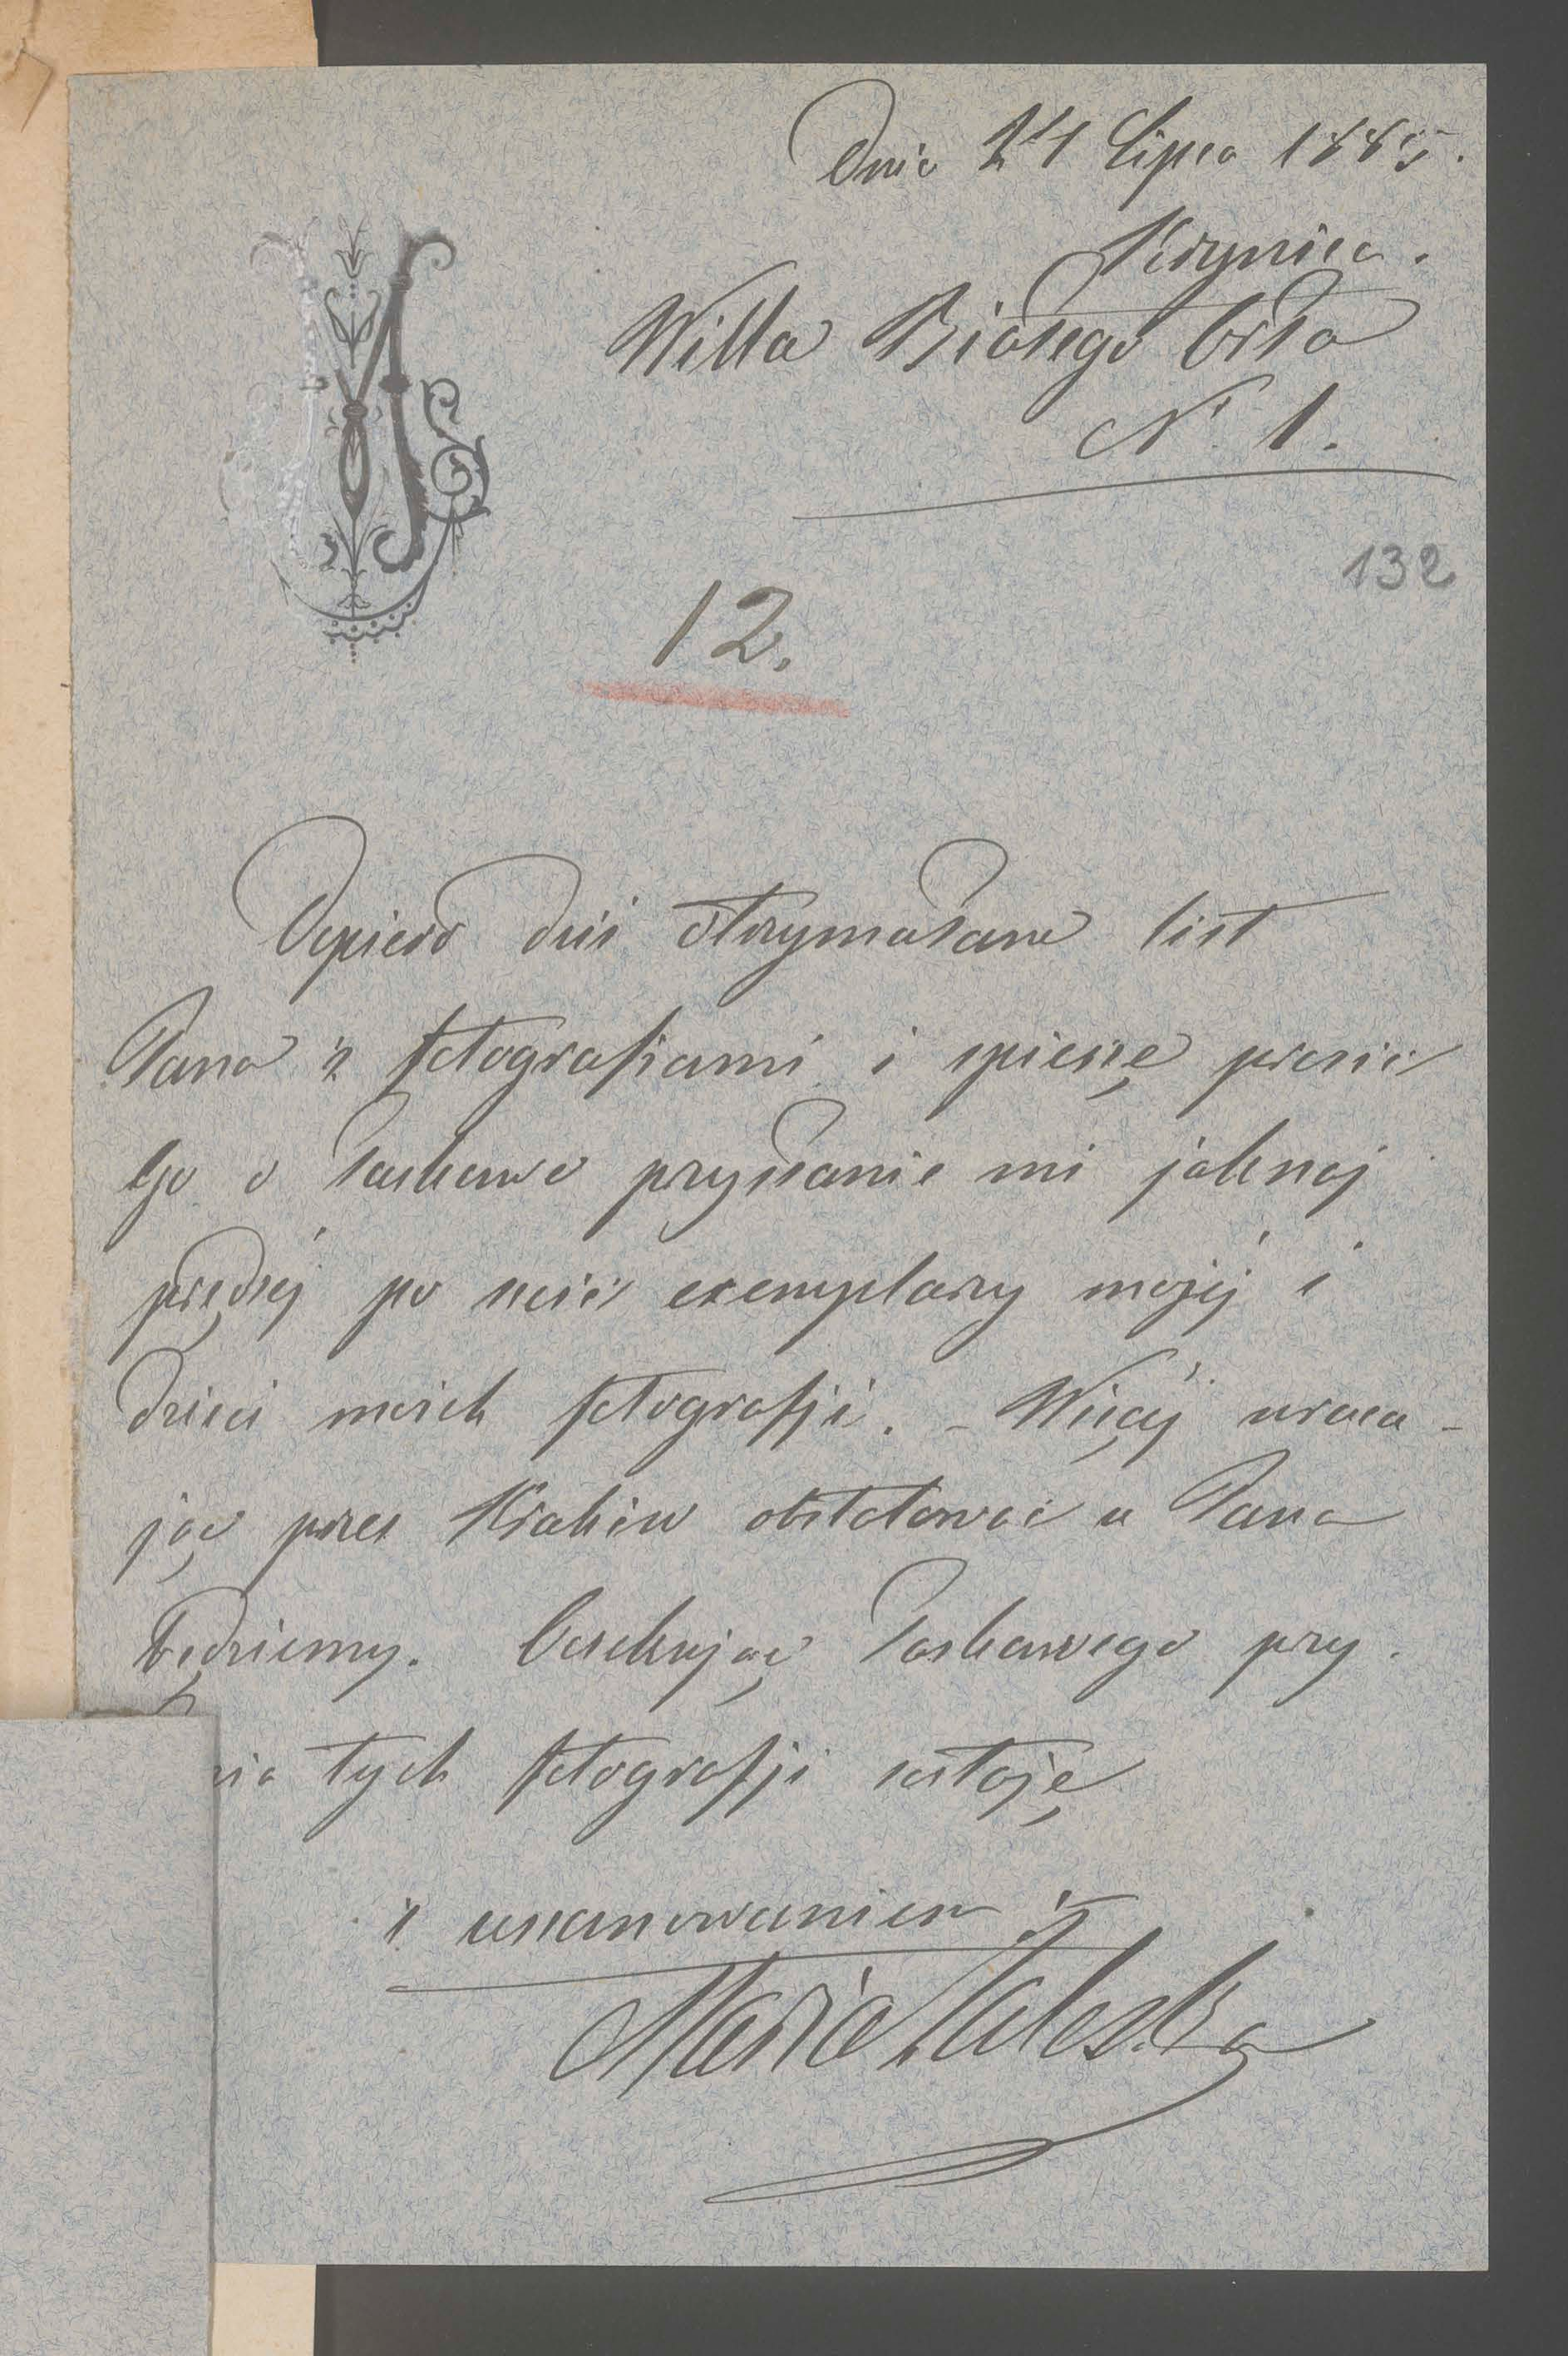 Dnia 24 Lipca 1885.
Krynica.
Willa Białego Orła
N. 1.
132
12.
Dopiero dziś otrzymałam list
Pana z fotografiami i spieszę prosić
Go o łaskawe przysłanie mi jaknaj
prędzéj po sześć exemplarzy mojéj i
dzieci moich fotografji. – Więcéj wraca-
jąc przez Kraków obstalować u Pana
będziemy. Oczekując łaskawego przy-
nia tych fotografji zostaję
z uszanowaniem
Maria